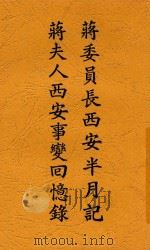 蔣委員長西安半月記
蔣夫人西安事變回憶錄
mtoou.info